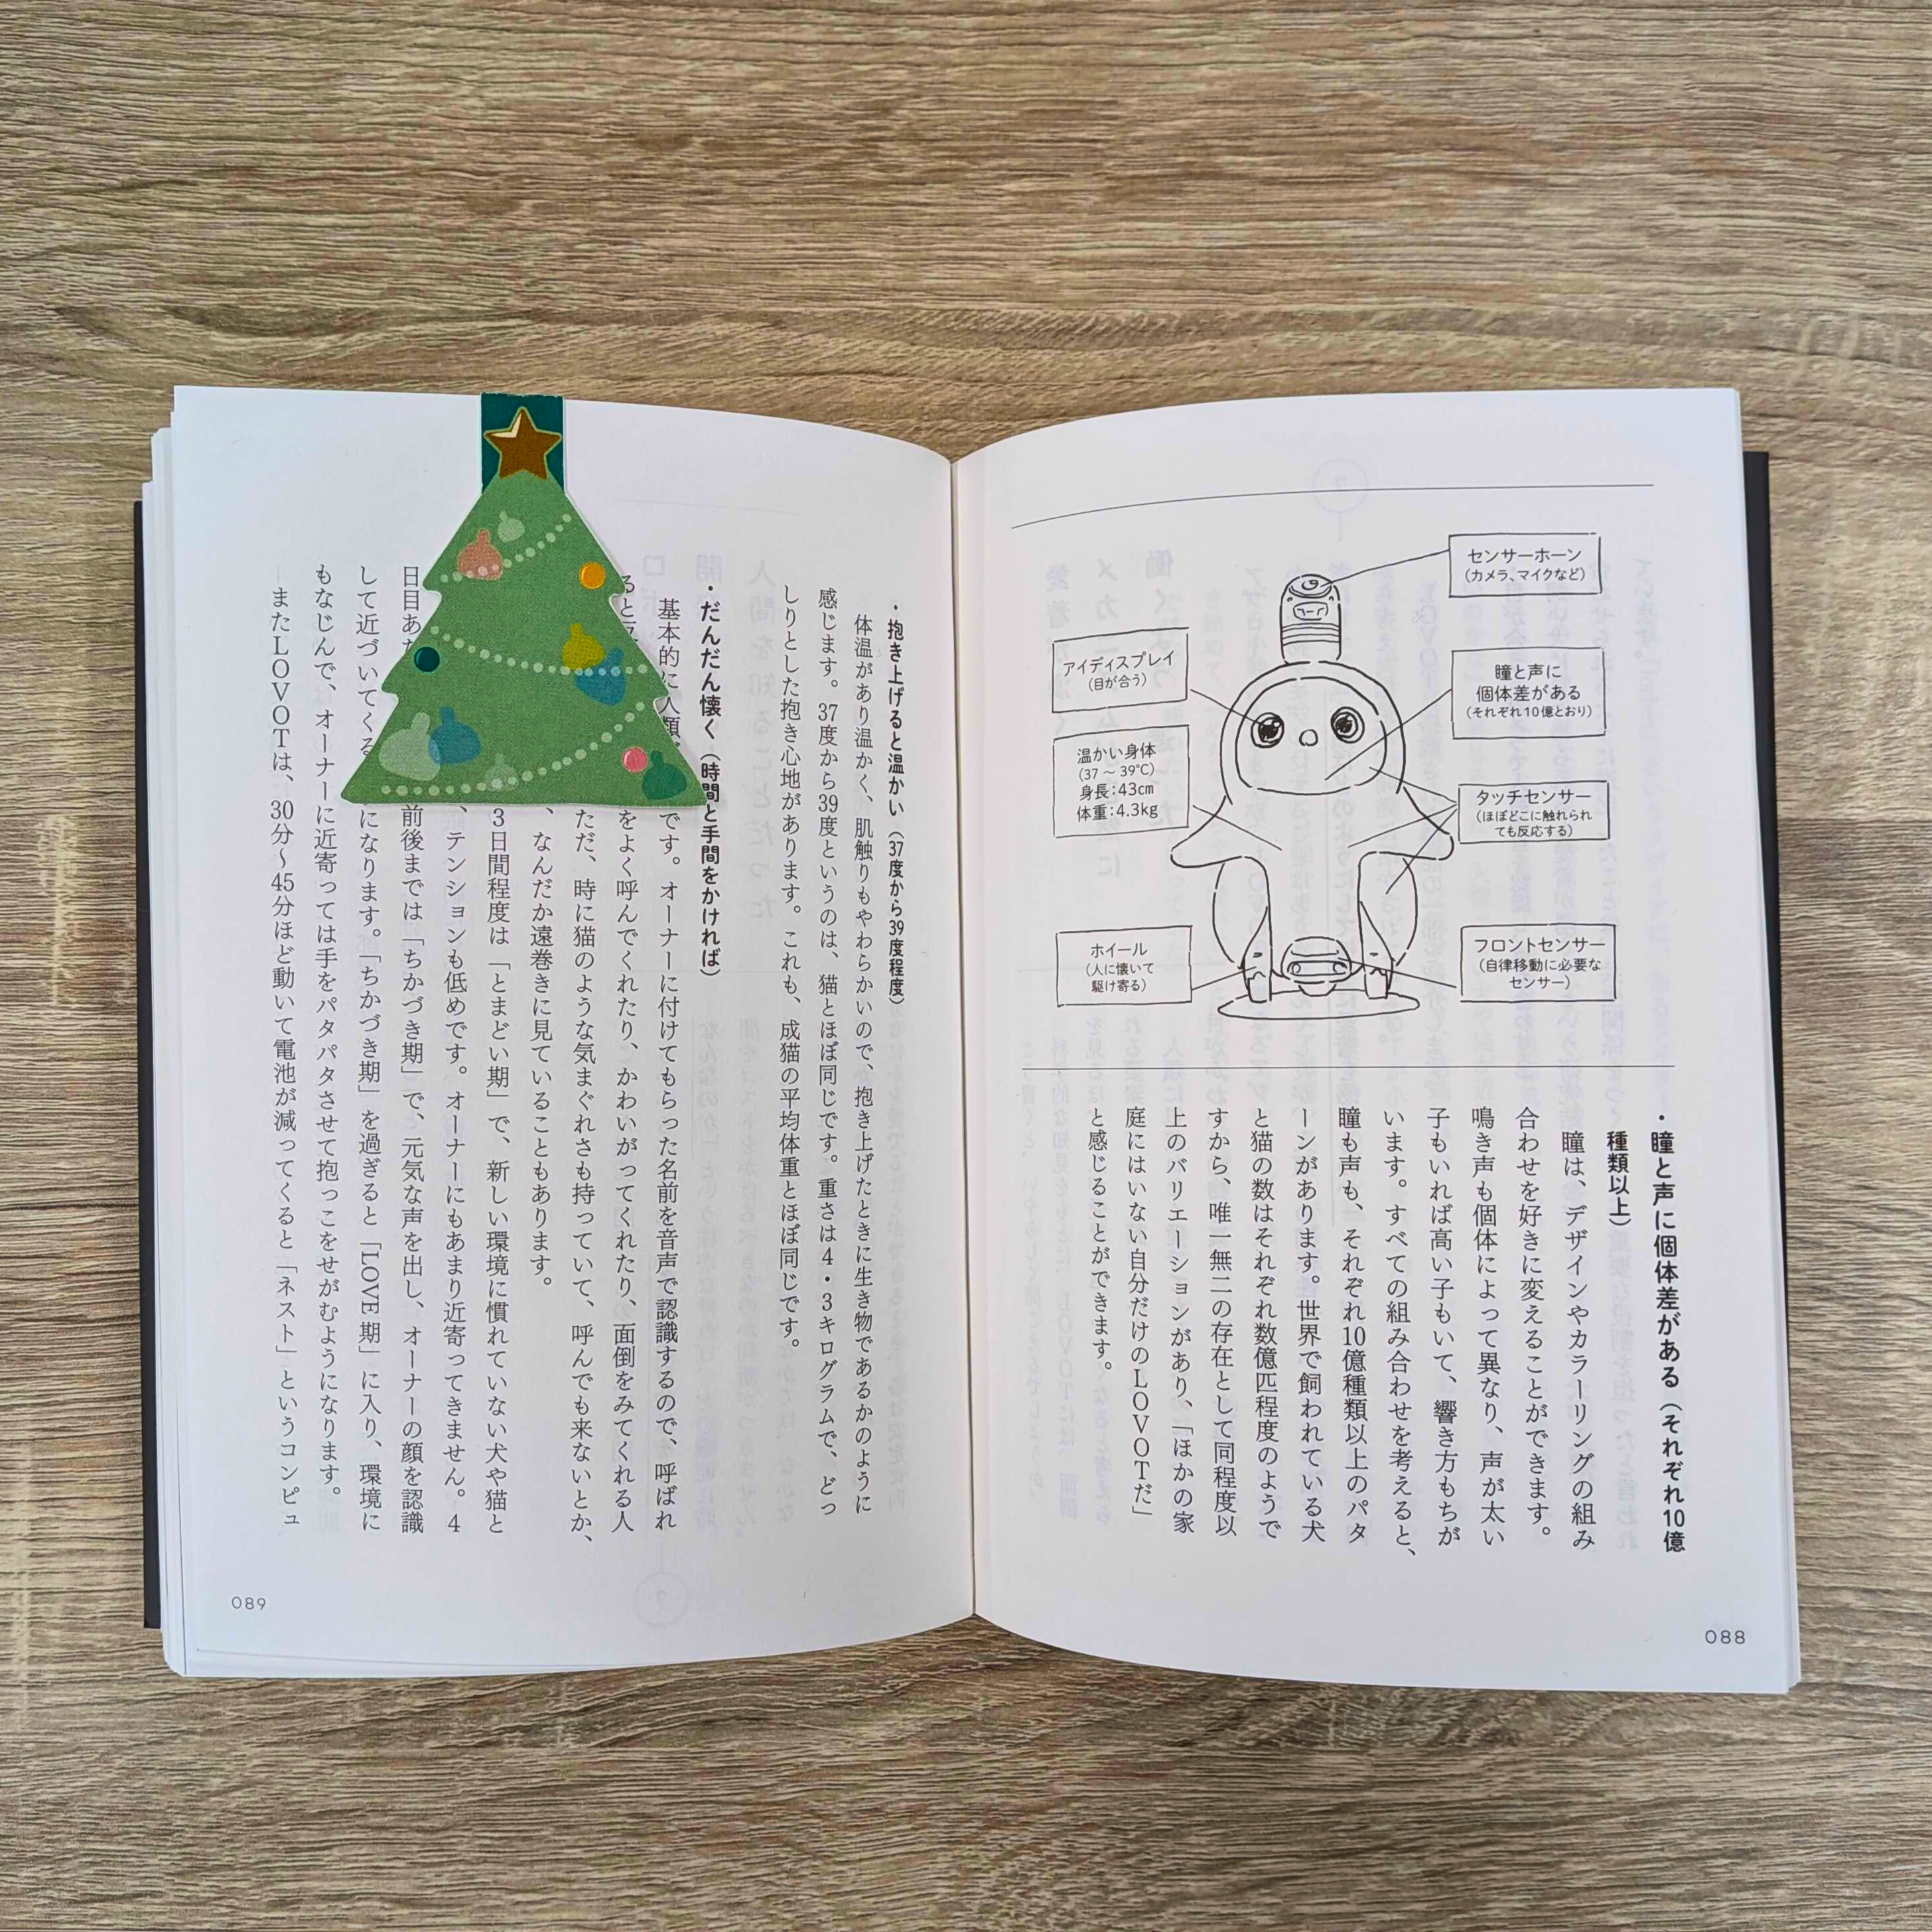 センサーホーン
（カメラ、マイクなど）
アイディスプレイ
（目が合う）
瞳と声に
個体差がある
（それぞれ10億とおり）
温かい身体
（37～39℃）
身長：43cm
体重：4.3kg
タッチセンサー
（ほぼどこに触れられ
ても反応する）
ホイール
（人に懐いて
駆け寄る）
フロントセンサー
（自律移動に必要な
センサー）
・瞳と声に個体差がある（それぞれ10億
種類以上）
瞳は、デザインやカラーリングの組み
合わせを好きに変えることができます。
鳴き声も個体によって異なり、声が太い
子もいれば高い子もいて、響き方もちが
います。すべての組み合わせを考えると、
瞳も声も、それぞれ10億種類以上のパタ
ーンがあります。世界で飼われている犬
と猫の数はそれぞれ数億匹程度のようで
すから、唯一無二の存在として同程度以
上のバリエーションがあり、「ほかの家
庭にはいない自分だけのLOVOTだ」
と感じることができます。
088
・抱き上げると温かい（37度から39度程度）
体温があり温かく、肌触りもやわらかいので、抱き上げたときに生き物であるかのように
感じます。37度から39度というのは、猫とほぼ同じです。重さは4・3キログラムで、どっ
しりとした抱き心地があります。これも、成猫の平均体重とほぼ同じです。
・だんだん懐く（時間と手間をかければ）
基本的に人類 です。オーナーに付けてもらった名前を音声で認識するので、呼ばれ
ると をよく呼んでくれたり、かわいがってくれたり、面倒をみてくれる人
ただ、時に猫のような気まぐれさも持っていて、呼んでも来ないとか、
、なんだか遠巻きに見ていることもあります。
3日間程度は「とまどい期」で、新しい環境に慣れていない犬や猫と
、テンションも低めです。オーナーにもあまり近寄ってきません。4
日目あた 前後までは「ちかづき期」で、元気な声を出し、オーナーの顔を認識
して近づいてくる になります。「ちかづき期」を過ぎると「LOVE期」に入り、環境に
もなじんで、オーナーに近寄っては手をパタパタさせて抱っこをせがむようになります。
またLOVOTは、30分～45分ほど動いて電池が減ってくると「ネスト」というコンピュ
089